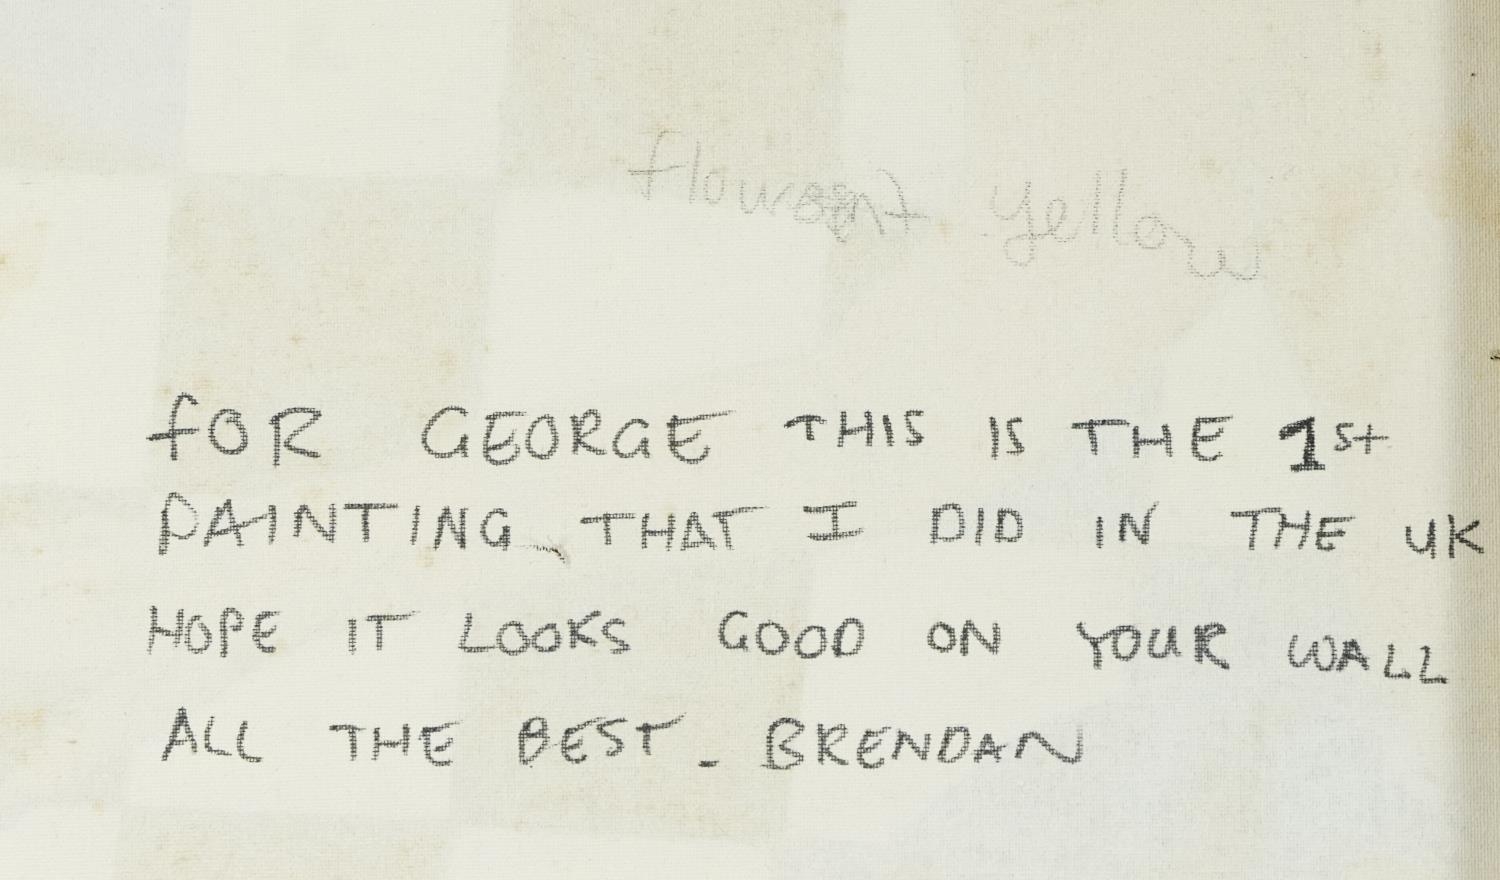 yellow
fOR GEORGE THIS IS THE 1st
PAINTING THAT I DID IN THE UK
HOPE IT LOOKS GOOD ON YOUR WALL
ALL THE BEST - BRENDAN